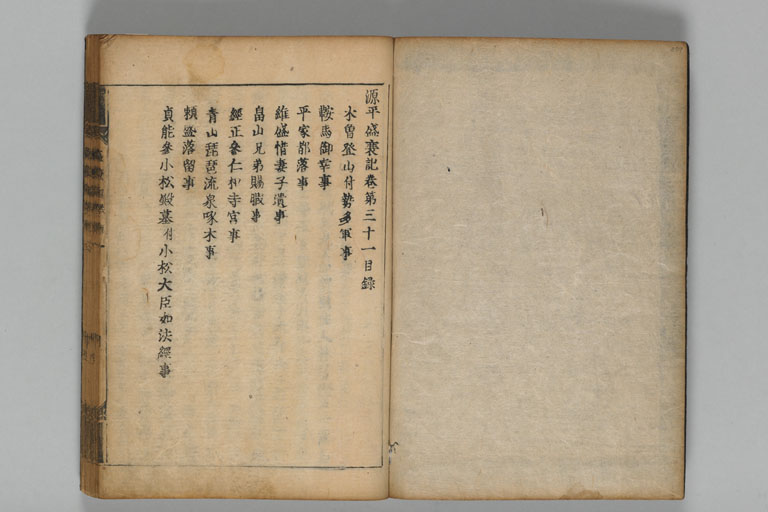 源平盛衰記巻第三十一目録
木曽登山付勢多軍事
鞍馬御幸事
平家都落事
維盛惜妻子遺事
畠山兄弟賜暇事
經正参仁和寺宮事
青山琵琶流泉啄木事
頼盛落留事
貞能参小松殿墓付小松大臣如法經事